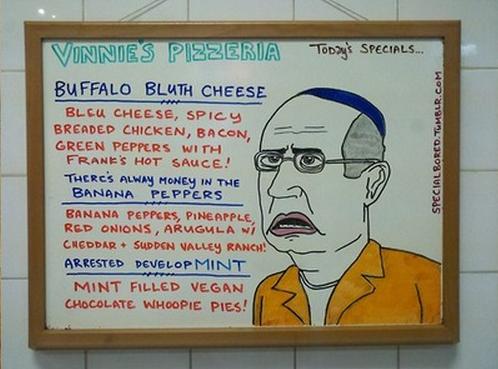 VINNIE'S PIZZERIA
TODAY'S SPECIALS...
BUFFALO BLUTH CHEESE
BLEU CHEESE, SPICY
BREADED CHICKEN, BACON,
GREEN PEPPERS WITH
FRANK'S HOT SAUCE!
THERE'S ALWAY MONEY IN THE
BANANA PEPPERS
BANANA PEPPERS, PINEAPPLE,
RED ONIONS, ARUGULA W/
CHEDDAR + SUDDEN VALLEY RANCH!
ARRESTED DEVELOPMINT
MINT FILLED VEGAN
CHOCOLATE WHOOPIE PIES!
SPECIALBORED.TUMBLR.COM